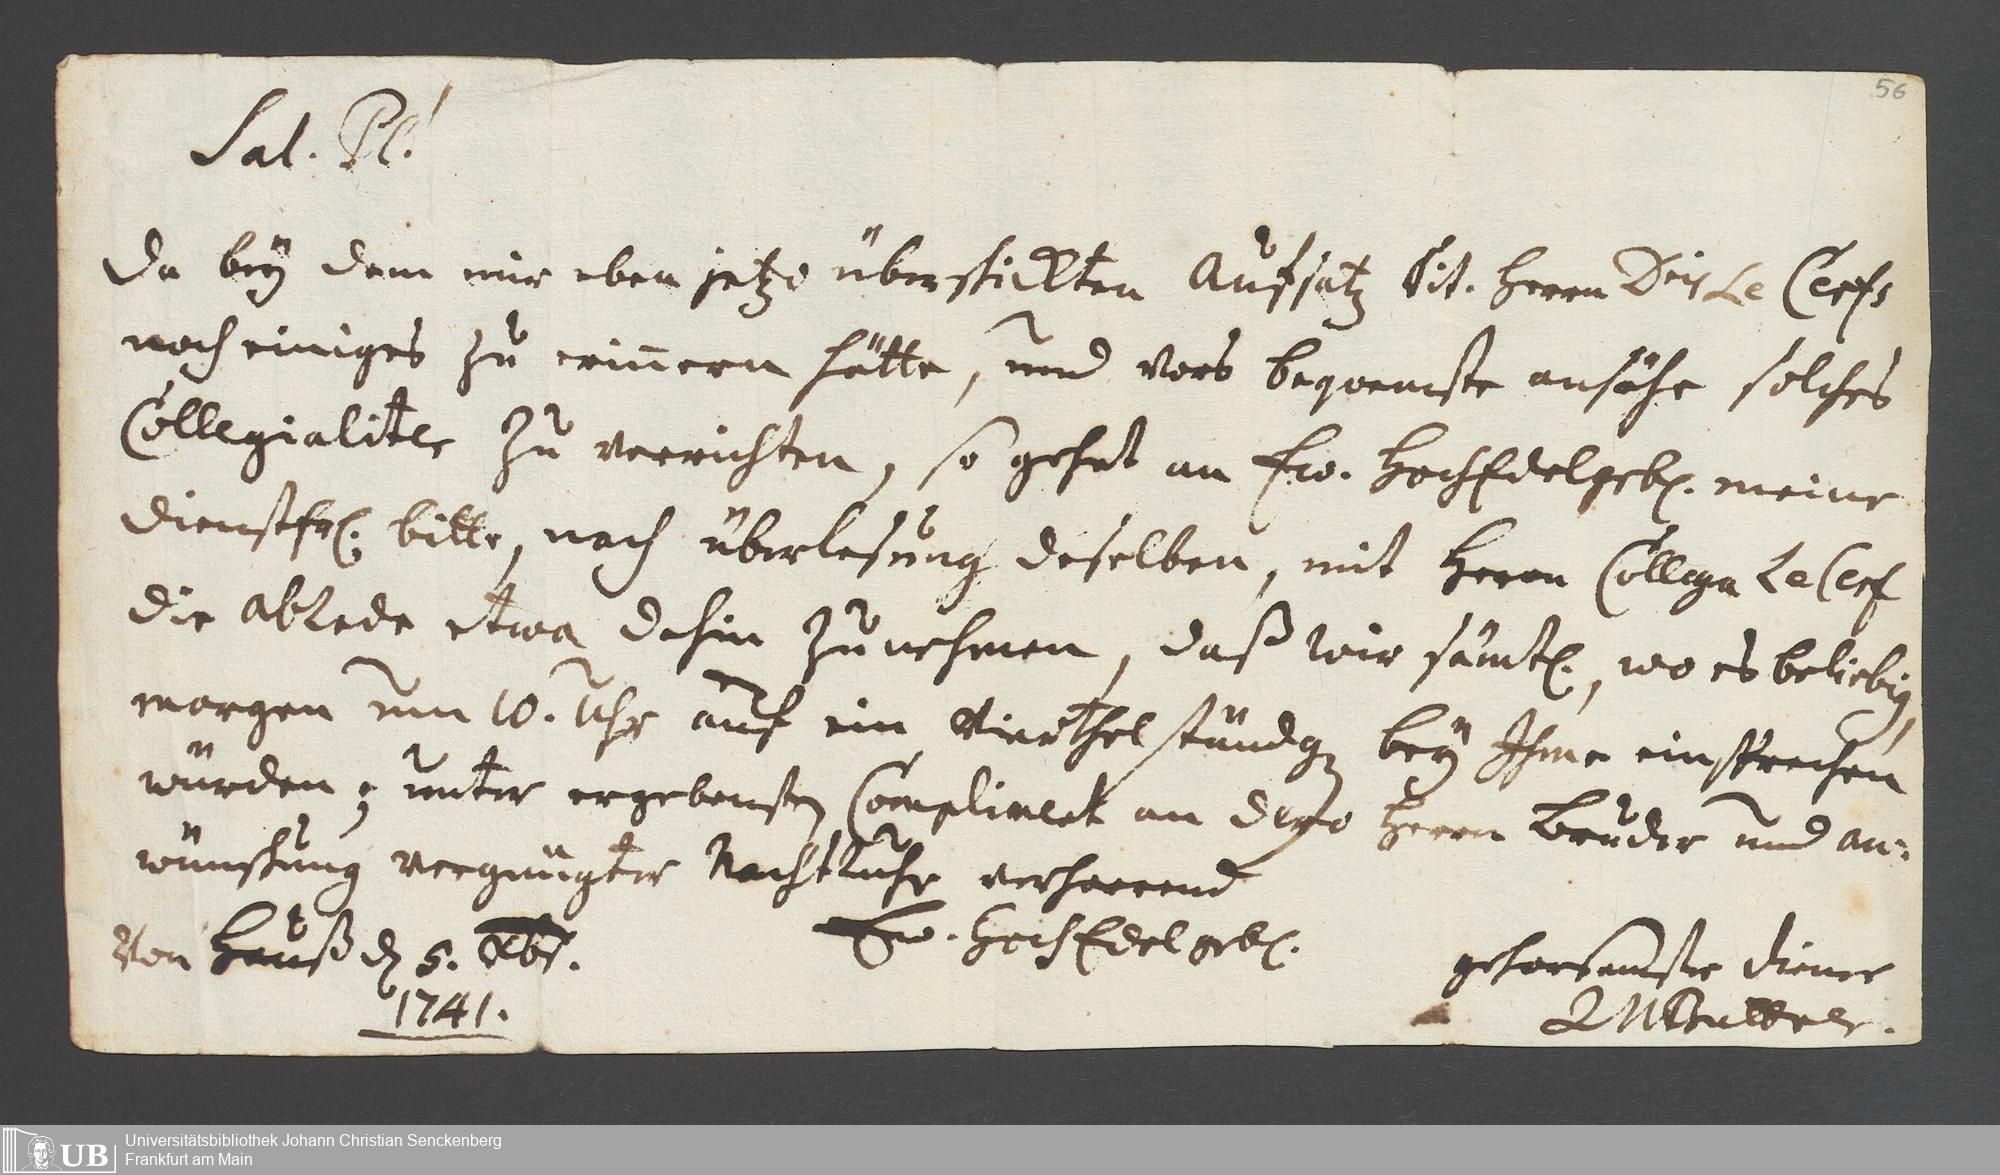 56
Sal. Pl!
Da beÿ dem mir eben jetzo überschickten Aufsatz Tit. Herrn Dris Le Cerfs
noch einiges zu erinnern hätte, und vors beqvemste ansähe solches
Collegialiter zu verrichten, so gehet an Ew. HochEdelgeb. meine
dienstfrl. bitte, nach überlesung deselben, mit Herrn Collega Le Cerf
die abrede etwa dahin zu nehmen, daß wir sämtl., wo es beliebig,
morgen um 10. Uhr auf ein Vierthelstündgen beÿ Ihme einsprechen
würden; unter ergebensten Compliment an dero Herrn Bruder und an-
wünschung vergnügter Nachtruhe verharrend
Ew. HochEdelgeb.
Von Hauß d 5. Xbr.
1741.
gehorsamster diener
Büttner.
UB
Universitätsbibliothek Johann Christian Senckenberg
Frankfurt am Main